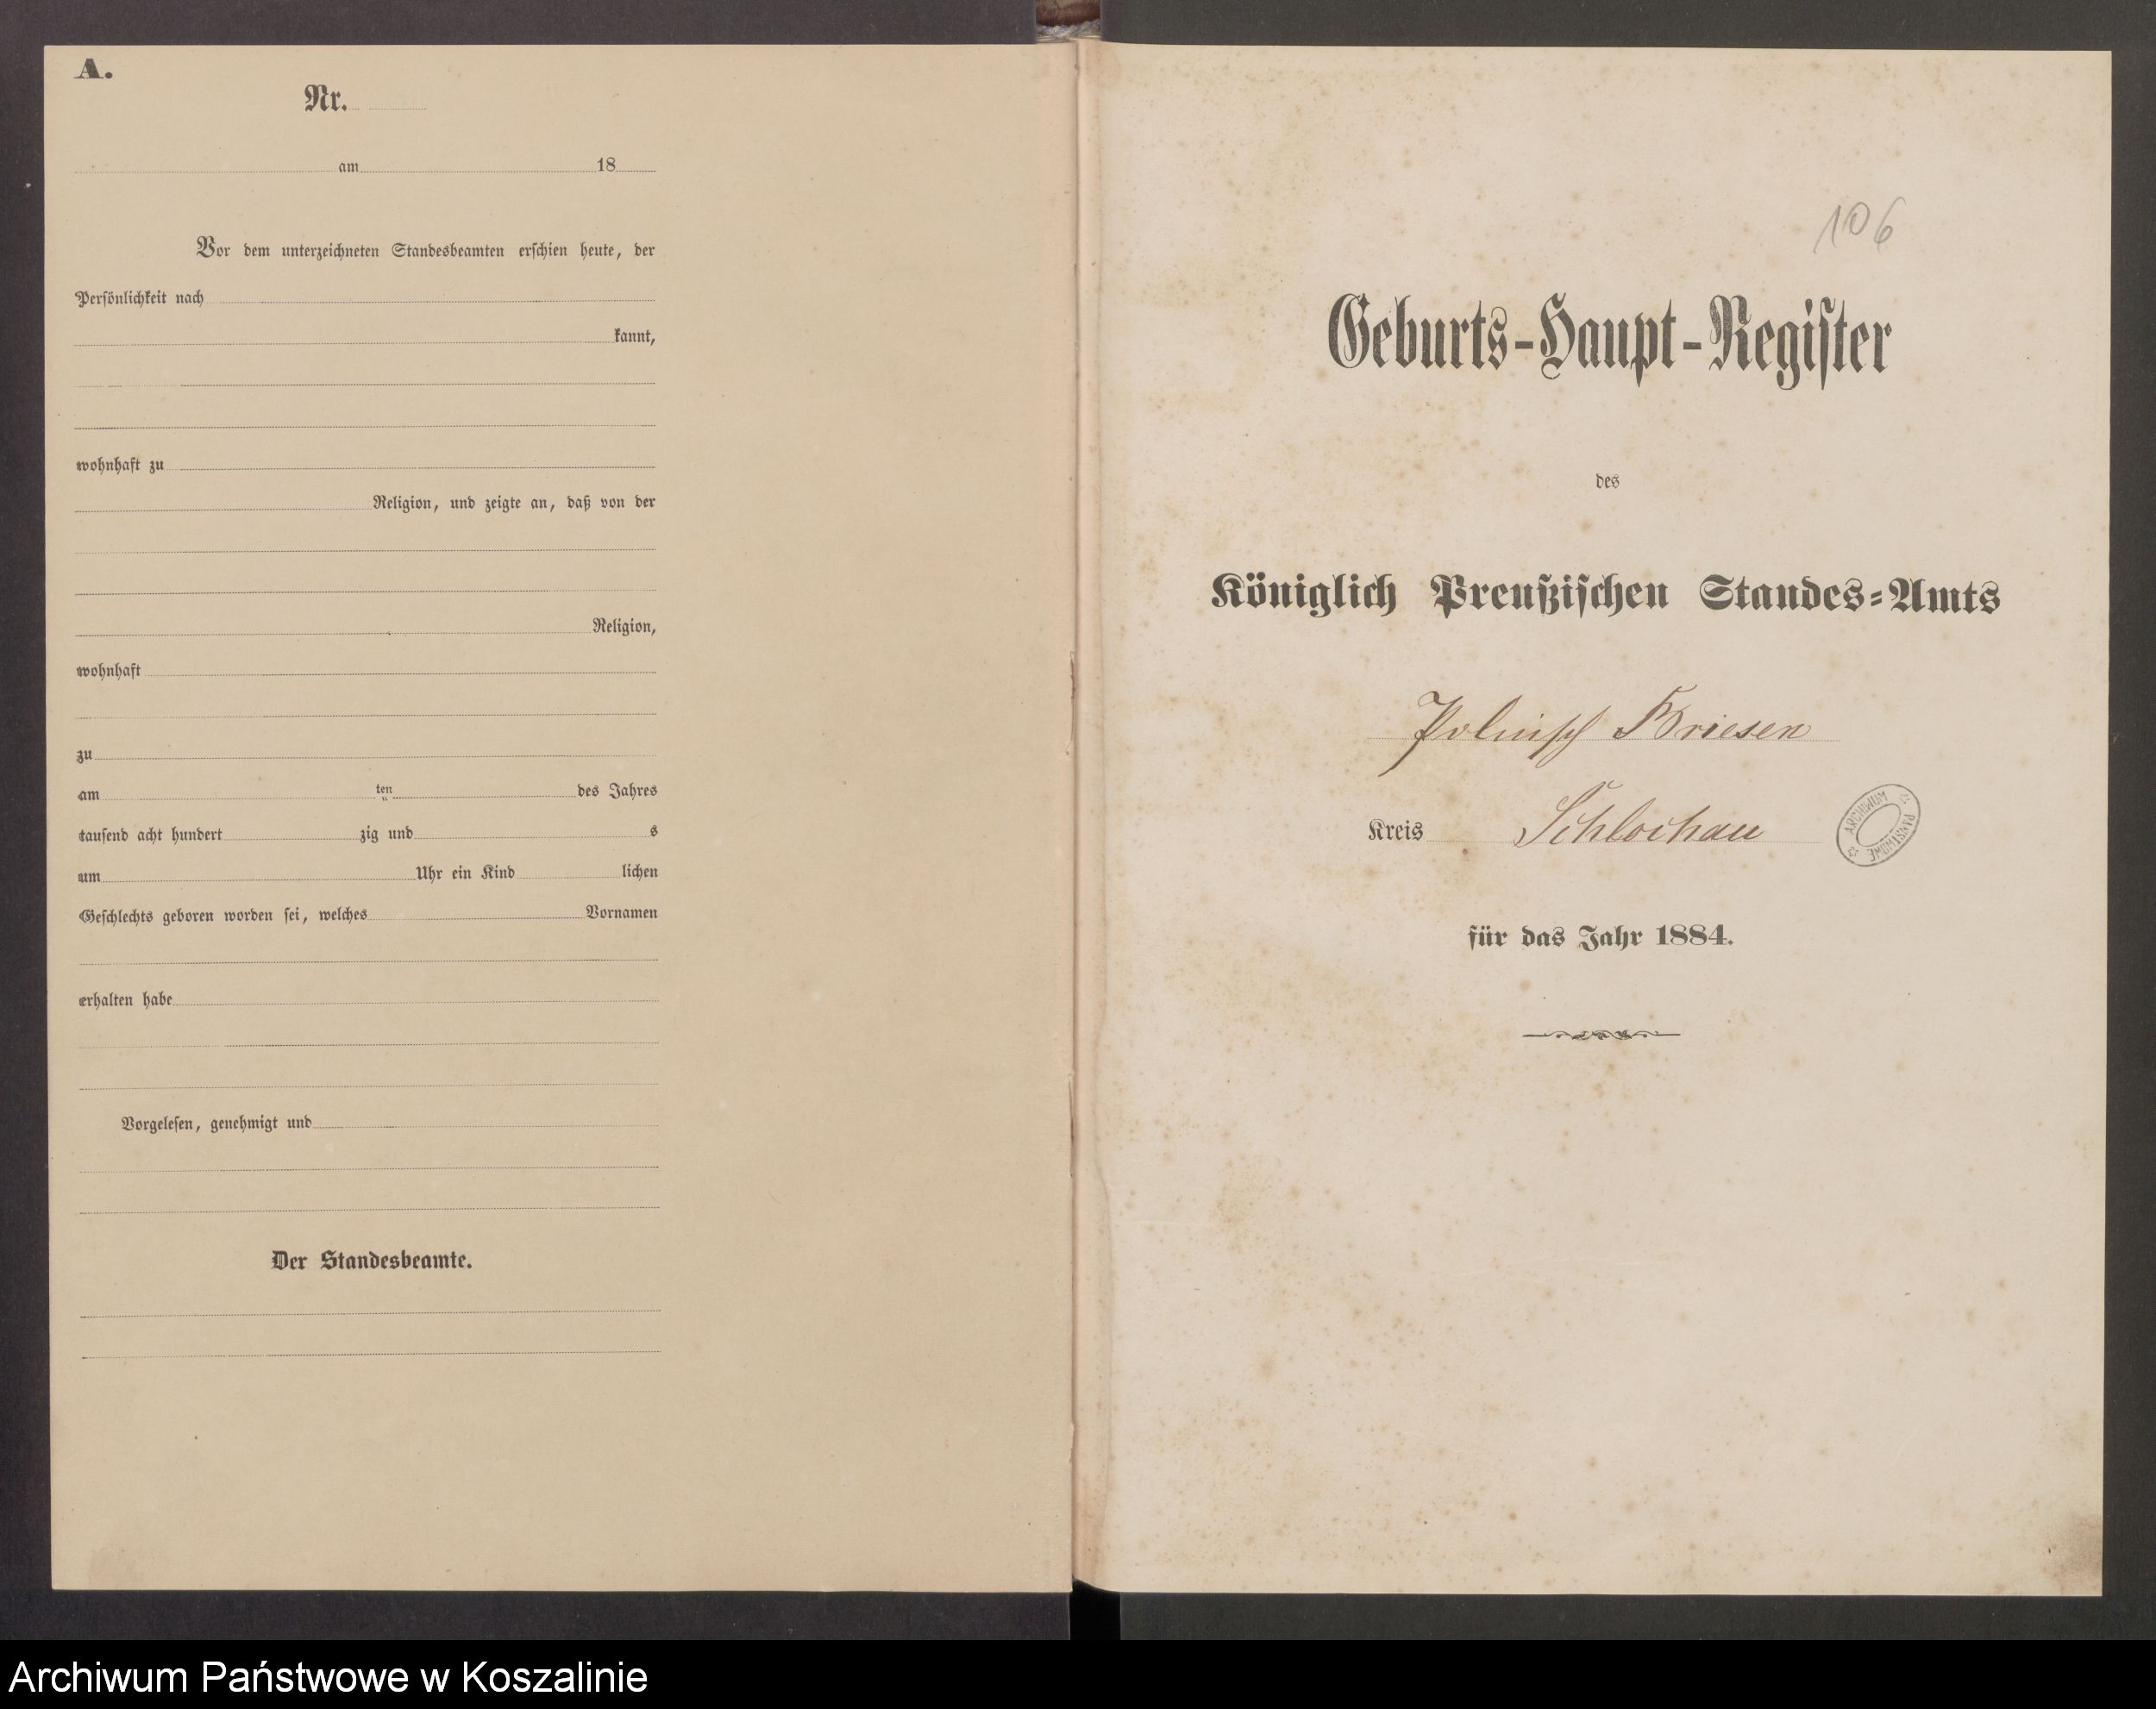 A.
Nr.
am 18
Vor dem unterzeichneten Standesbeamten erschien heute, der
Persönlichkeit nach
kannt,
wohnhaft zu
Religion, und zeigte an, daß von der
Religion,
wohnhaft
zu
am ten des Jahres
tausend acht hundert zig und s
um Uhr ein Kind lichen
Geschlechts geboren worden sei, welches Vornamen
erhalten habe
Vorgelesen, genehmigt und
Der Standesbeamte.
106
Geburts-Haupt-Register
des
Königlich Preußischen Standes-Amts
Polnisch Briesen
Kreis Schlochau
ARCHIWUM PAŃSTWOWE
für das Jahr 1884.
Archiwum Państwowe w Koszalinie